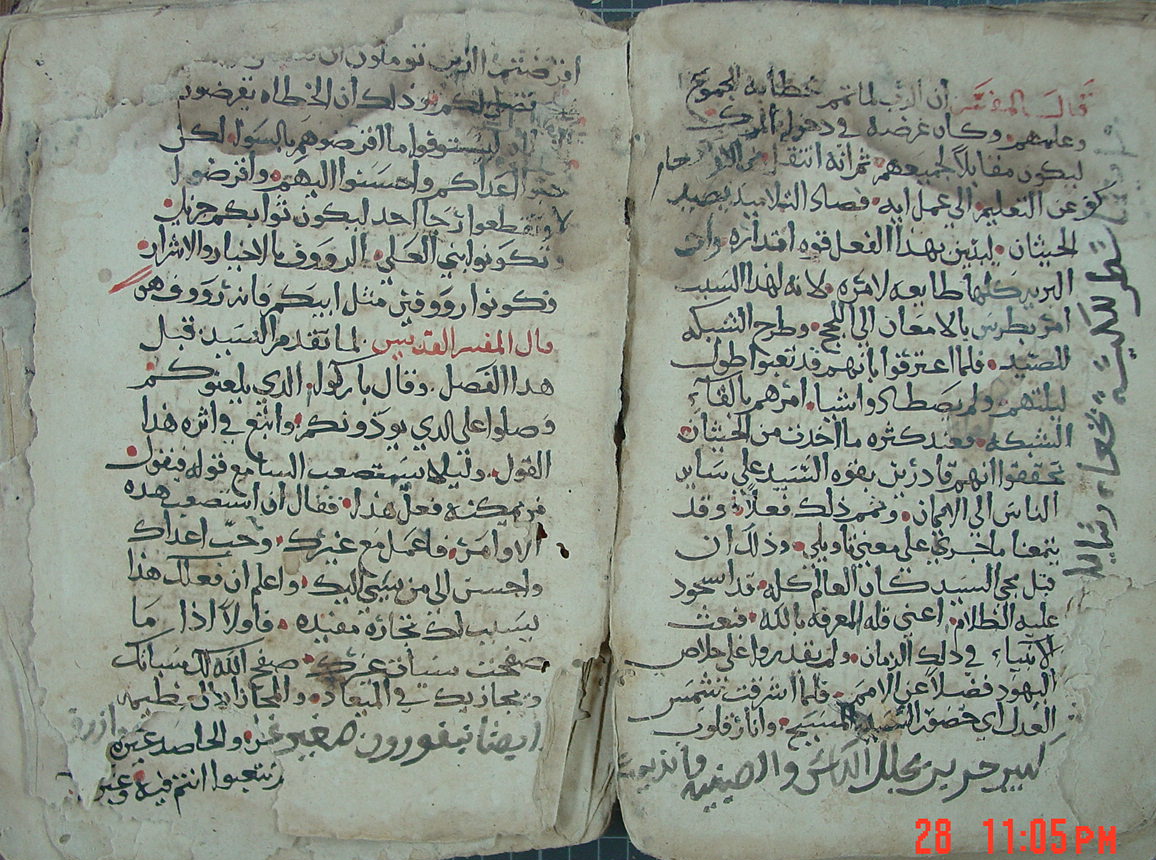 قال المفسر ان الرب لما تمم خطابه للجموع
وعلمهم وكان غرضه في دخوله المركب
ليكون مقابلاً لجميعهم ثم انه انتقل
عن التعليم الي عمل ايه فصاد التلاميذ بصيد
الحيتان ليبين بهذا الفعل قوه اقتداره وان
البريه كلها طايعه لامره ولانه لهذا السبب
امر بطرس بالامعان الي اللجج وطرح الشبكه
للصيد فلما اعترفوا بانهم قد تعبوا طول
ليلتهم ولم يصطادوا شيا امرهم بالقآء
الشبكه فعند كثره ما اخذت من الحيتان
تحققوا انهم قادرين بقوه السيد علي ساير
الناس الي الايمان وتمم ذلك فعلاً وقد
يتمعنا ما جري علي معني تاويلي وذلك ان
قبل مجي السيد كان العالم كله قد استحود
عليه الظلام اعني قله المعرفه بالله فبعث
الانبياء في ذلك الزمان ولم يقدروا علي خلاص
اليهود فضلاً عن الامم فلما اشرقت شمس
العدل اي حضور السيد المسيح وانار قلوب
كبير حرير بجلل الكاس والصينيه
افرضتم الذين توملون ان
تفضل لكم وذلك ان الخطاه يقرضون
ليستوفوا ما اقرضوهم بالسوا لكن
حبوا اعداكم واحسنوا اليهم واقرضوا
ولا تقطعوا رجا احد ليكون ثوابكم جزيل
وتكونوا بني العلي الرووف بالاخيار والاشرار
فكونوا رووفين مثل ابيكم فانه رووف هو
قال المفسر القديس لما تقدم السيد قبل
هذا الفصل وقال باركوا الذي يلعنوكم
وصلوا علي الذي يوذونكم واتبع في اثره هذا
القول وليلا يستصعب السامع قوله فيقول
من يمكنه فعل هذا فقال ان استصعب هذه
الاوامر فاعمل مع غيرك وحب اعداك
واحسن الي من يسي اليك واعلم ان فعلك هذا
يسبب لك تجازه مفيده فاولاً اذا ما
صفحت سيات غيرك صفح الله لك سياتك
ويجازيك في الميعاد
ايضا نيفورون صغير
والحاصد غيره
وتتعبوا انتم فيه وغير